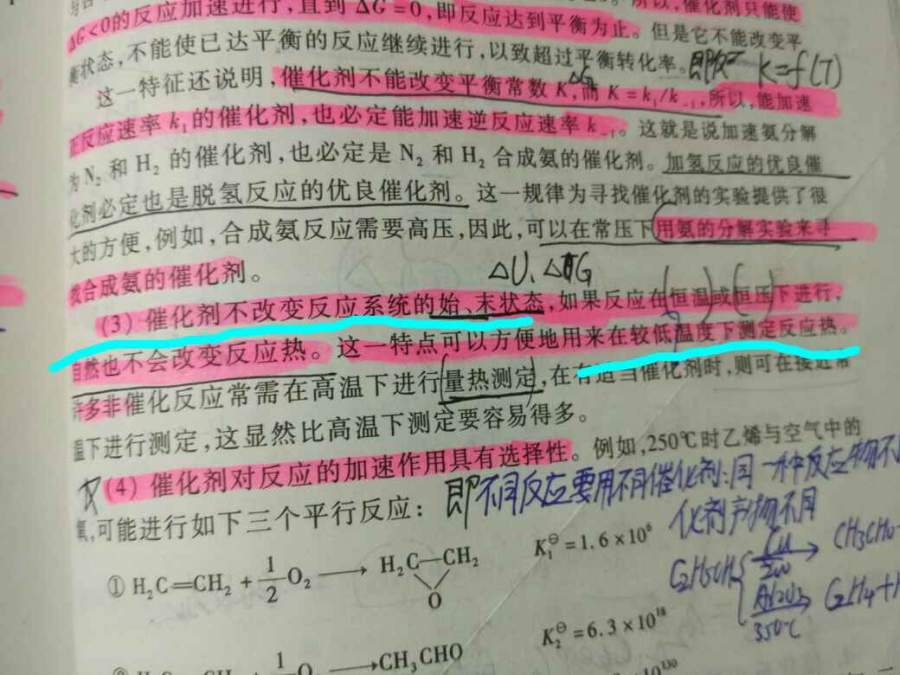 所以,催化剂只能使
ΔG<0的反应加速进行,直到 ΔG=0,即反应达到平衡为止。但是它不能改变平
衡状态,不能使已达平衡的反应继续进行,以致超过平衡转化率。
K=f(T)
这一特征还说明,催化剂不能改变平衡常数 K,而 K=k₁/k₋₁,所以,能加速
正反应速率 k₁的催化剂,也必定能加速逆反应速率 k₋₁。这就是说加速氨分解
为 N₂ 和 H₂ 的催化剂,也必定是 N₂ 和 H₂ 合成氨的催化剂。加氢反应的优良催
化剂必定也是脱氢反应的优良催化剂。这一规律为寻找催化剂的实验提供了很
大的方便,例如,合成氨反应需要高压,因此,可以在常压下用氨的分解实验来寻
找合成氨的催化剂。
ΔU、ΔG
(3) 催化剂不改变反应系统的始、末状态,如果反应在恒温或恒压下进行,
自然也不会改变反应热。这一特点可以方便地用来在较低温度下测定反应热。
许多非催化反应常需在高温下进行量热测定,在有适当催化剂时,则可在接近常
温下进行测定,这显然比高温下测定要容易得多。
(4) 催化剂对反应的加速作用具有选择性。例如,250℃时乙烯与空气中的
氧,可能进行如下三个平行反应:
即不同反应要用不同催化剂;同一种反应物不
化剂产物不同
① H₂C=CH₂ + 1/2 O₂ ⟶ H₂C—CH₂ O K₁⊖=1.6×10⁶
C₂H₅OH Cu 200 → CH₃CHO
Al₂O₃ 350℃ C₂H₄+H
1 O → CH₃CHO K₂⊖=6.3×10¹⁸
10¹³⁰